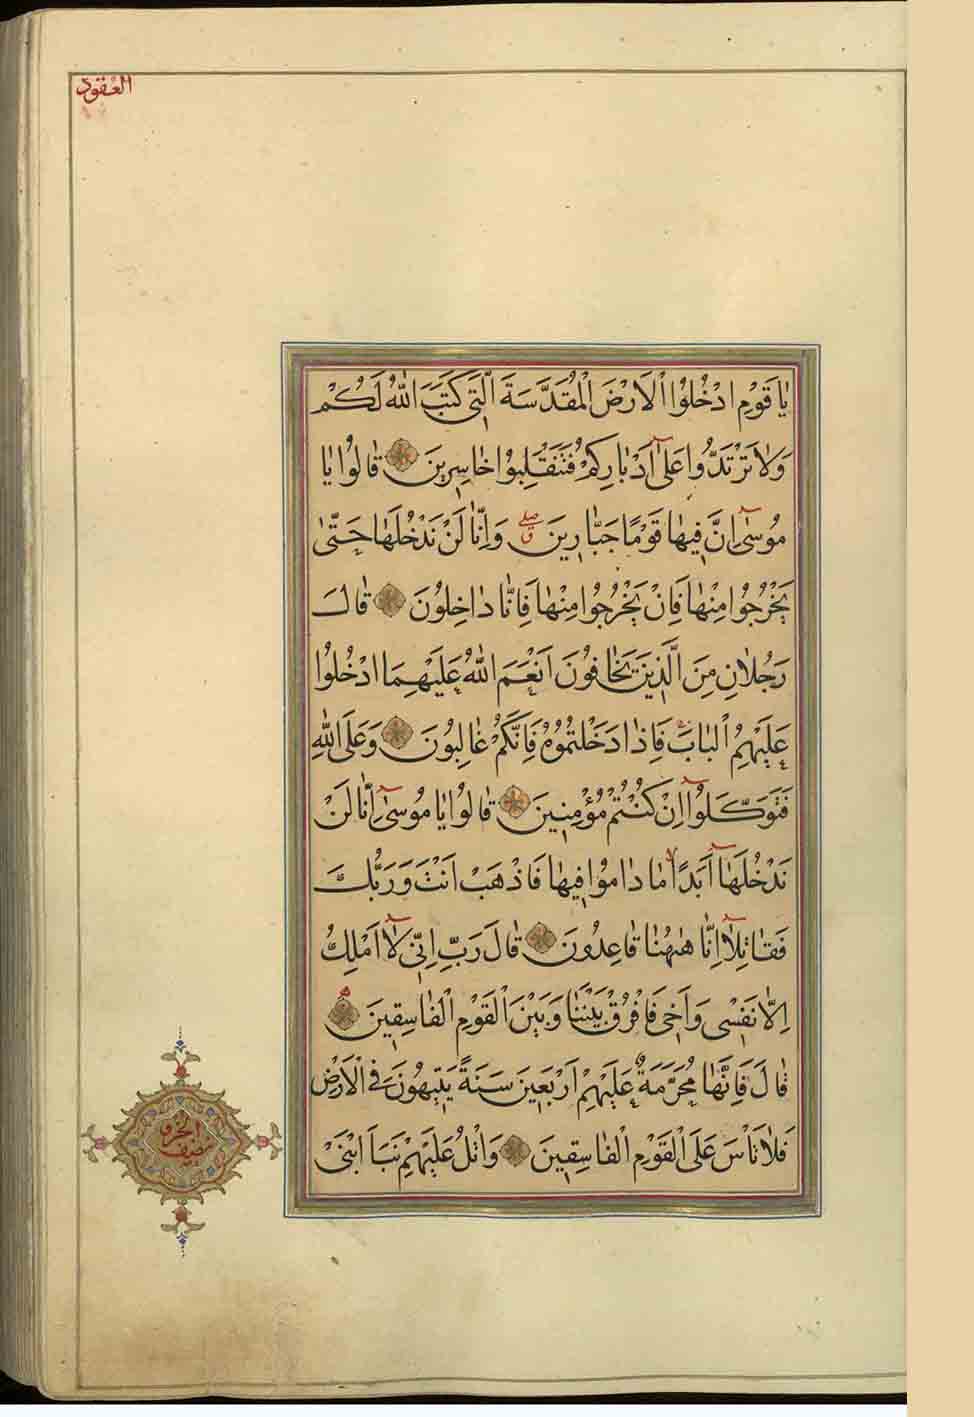 العقود
يَا قَوْمِ ادْخُلُوا الْاَرْضَ الْمُقَدَّسَةَ الَّتِي كَتَبَ اللّٰهُ لَكُمْ
وَلَا تَرْتَدُّوا عَلٰٓى اَدْبَارِكُمْ فَتَنْقَلِبُوا خَاسِرِينَ قَالُوا يَا
مُوسٰٓى اِنَّ فِيهَا قَوْمًا جَبَّارِينَ وَاِنَّا لَنْ نَدْخُلَهَا حَتّٰى
يَخْرُجُوا مِنْهَا فَاِنْ يَخْرُجُوا مِنْهَا فَاِنَّا دَاخِلُونَ قَالَ
رَجُلَانِ مِنَ الَّذِينَ يَخَافُونَ اَنْعَمَ اللّٰهُ عَلَيْهِمَا ادْخُلُوا
عَلَيْهِمُ الْبَابَ فَاِذَا دَخَلْتُمُوهُ فَاِنَّكُمْ غَالِبُونَ وَعَلَى اللّٰهِ
فَتَوَكَّلُوٓا اِنْ كُنْتُمْ مُؤْمِنِينَ قَالُوا يَا مُوسٰٓى اِنَّا لَنْ
نَدْخُلَهَآ اَبَدًا مَا دَامُوا فِيهَا فَاذْهَبْ اَنْتَ وَرَبُّكَ
فَقَاتِلَآ اِنَّا هٰهُنَا قَاعِدُونَ قَالَ رَبِّ اِنِّي لَآ اَمْلِكُ
اِلَّا نَفْسِي وَاَخِي فَافْرُقْ بَيْنَنَا وَبَيْنَ الْقَوْمِ الْفَاسِقِينَ
قَالَ فَاِنَّهَا مُحَرَّمَةٌ عَلَيْهِمْ اَرْبَعِينَ سَنَةً يَتِيهُونَ فِي الْاَرْضِ
فَلَا تَاْسَ عَلَى الْقَوْمِ الْفَاسِقِينَ وَاتْلُ عَلَيْهِمْ نَبَاَ ابْنَيْ